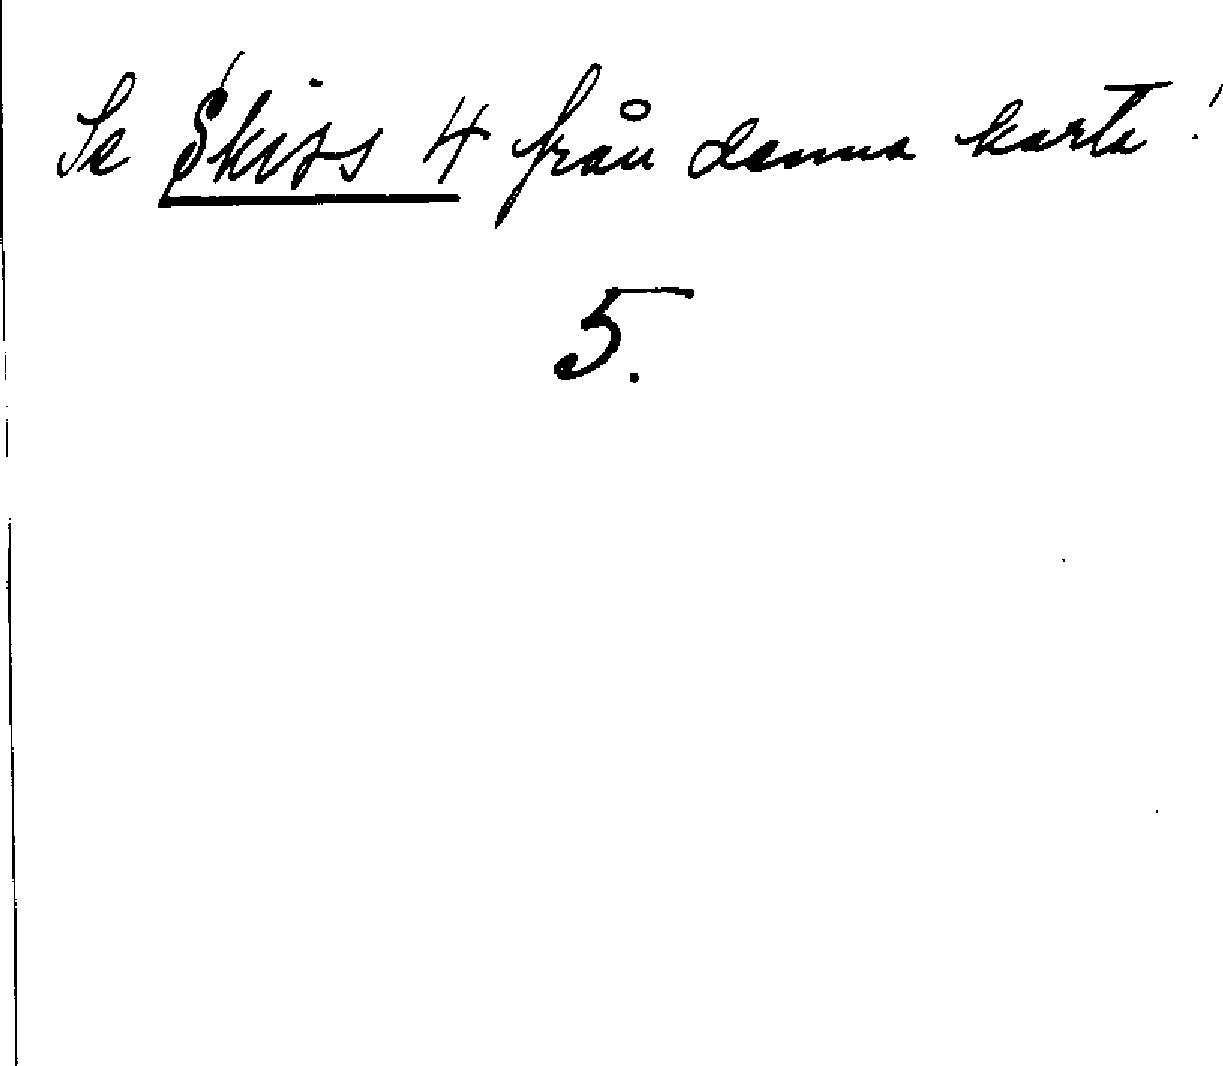 Se Skiss 4 från denna karta!
5.